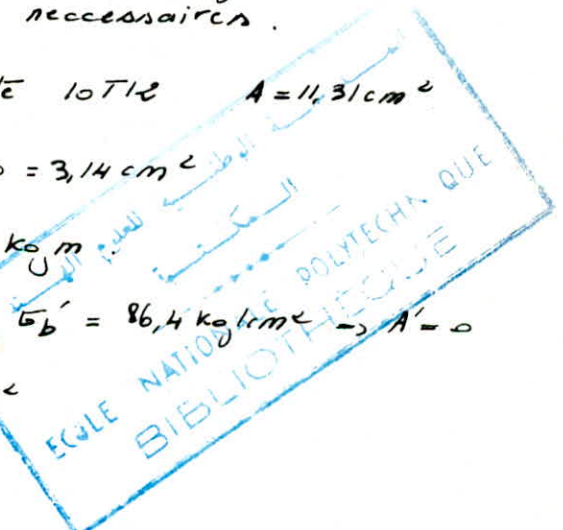 neccessaires.
10T12 A = 11,31 cm²
= 3,14 cm²
kgm
σb' = 86,4 kg/cm² → A' = 0
²
المكتبة
ECOLE NATIONALE POLYTECHNIQUE
BIBLIOTHEQUE